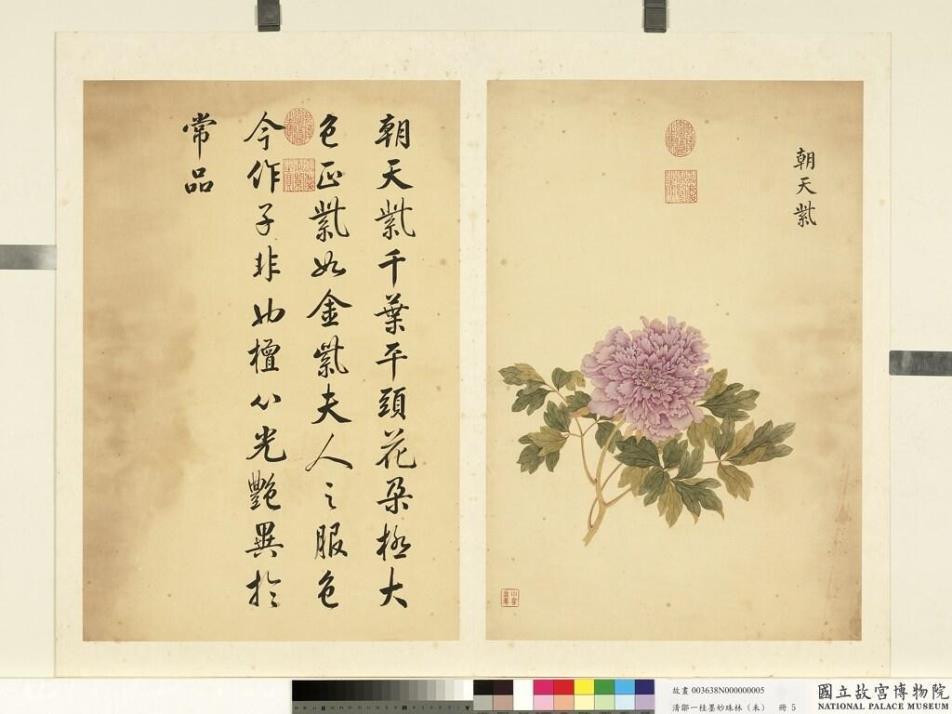 朝天紫
朝天紫千葉平頭花朶極大
色正紫如金紫夫人之服色
今作子非如檀心光艷異於
常品
故畫 003638N000000005
清鄒一桂墨妙珠林（未） 冊 5
國立故宮博物院
NATIONAL PALACE MUSEUM